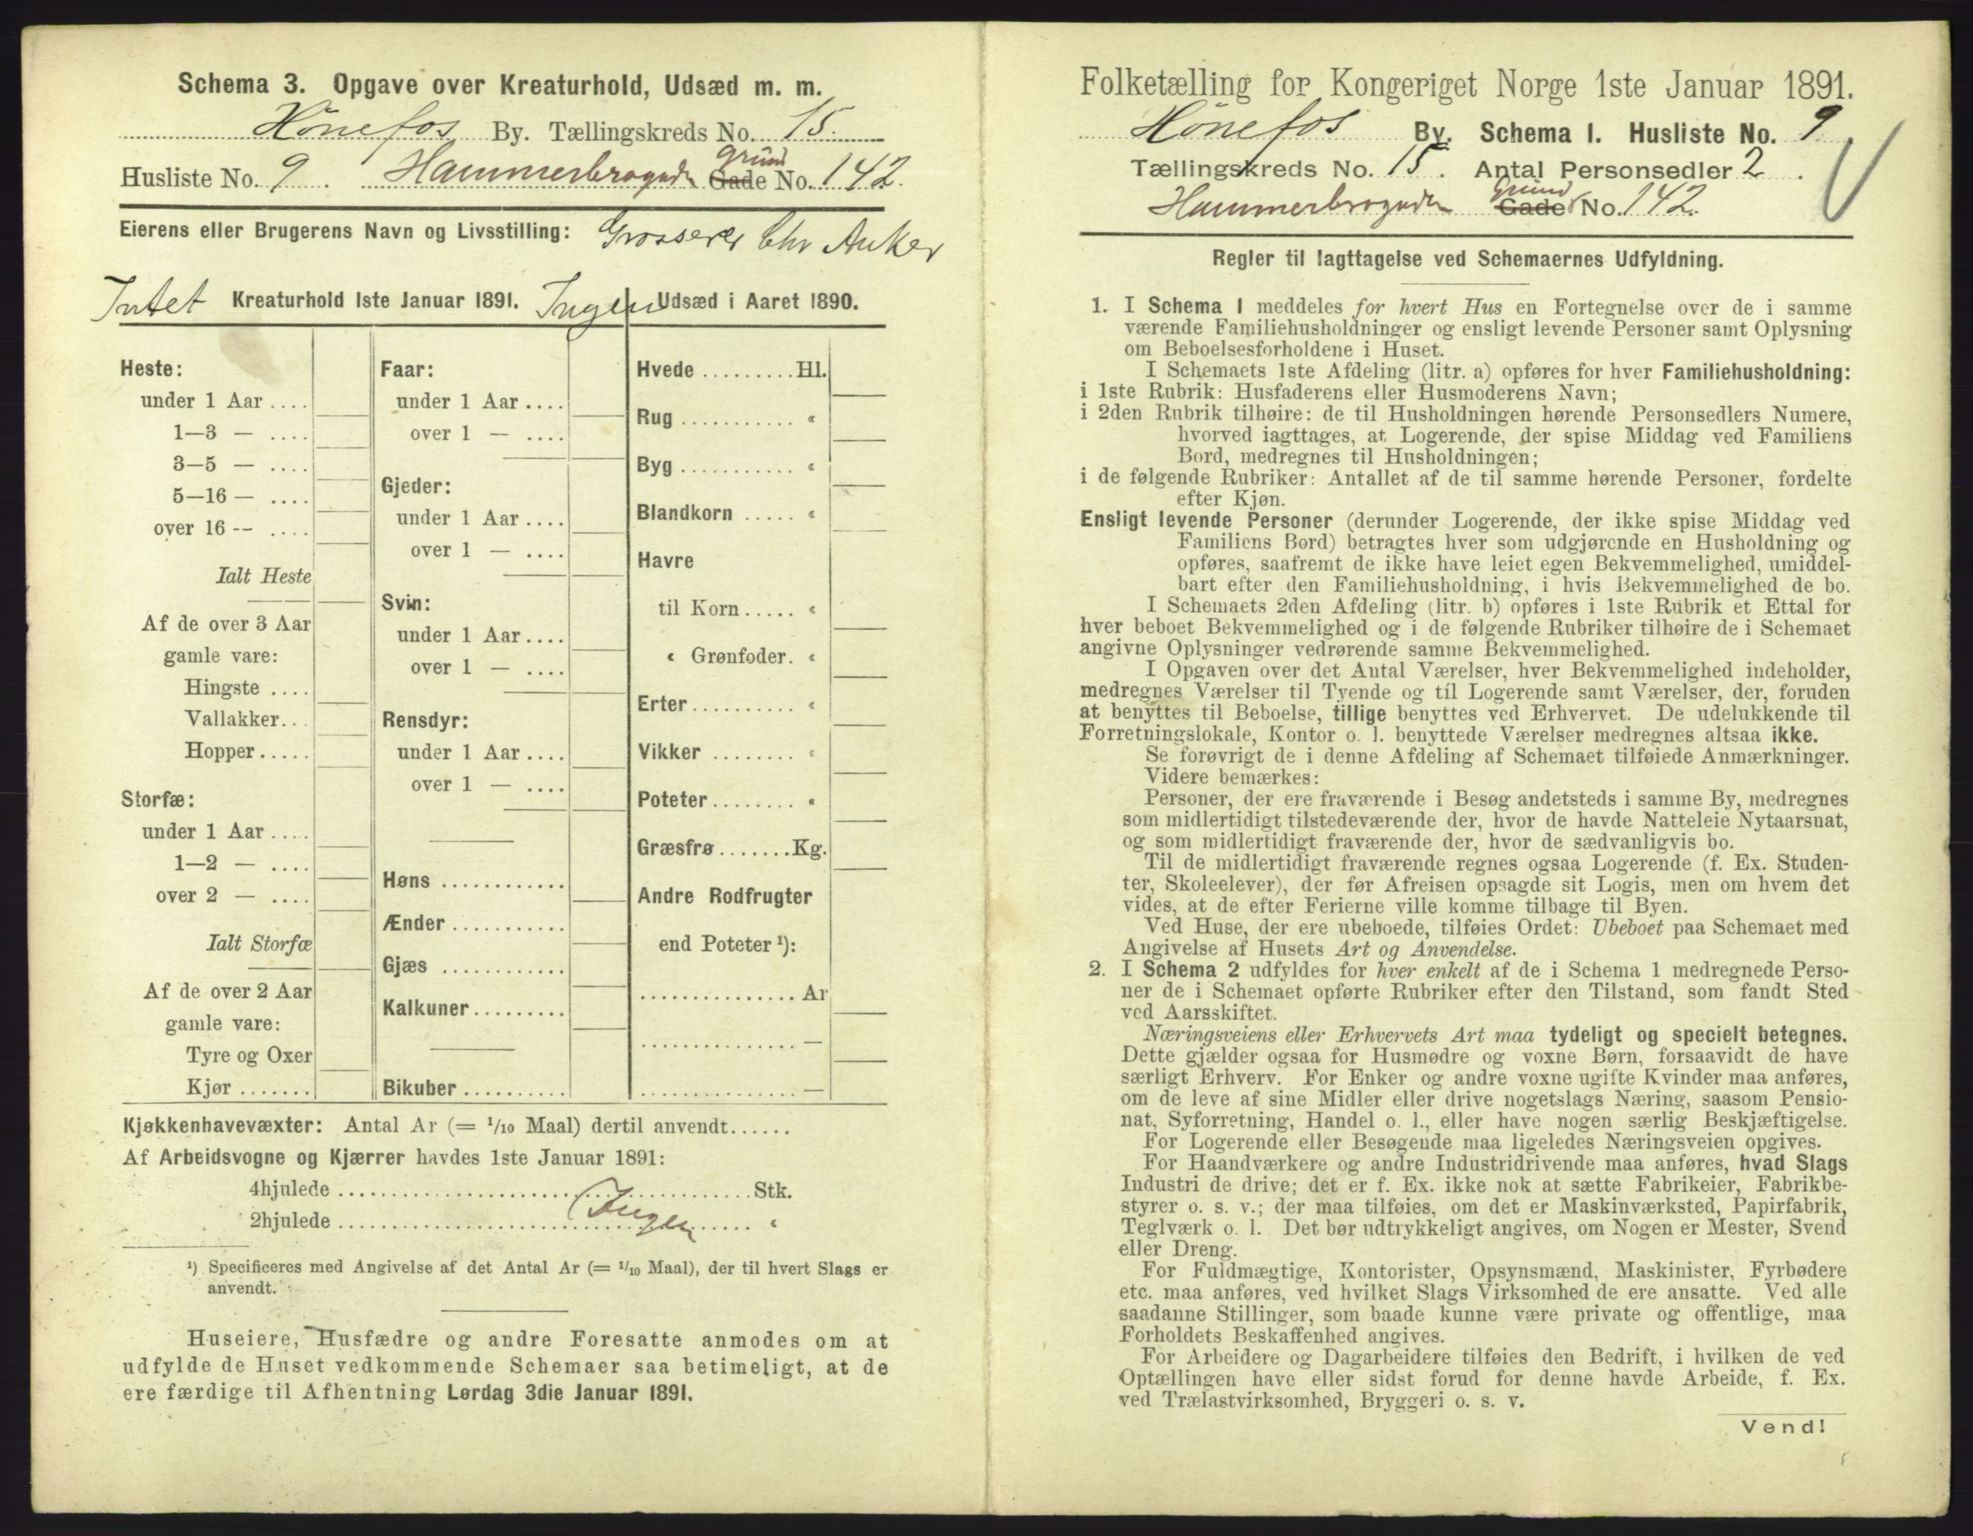 Schema 3. Opgave over Kreaturhold, Udsæd m. m.
Hønefos By. Tællingskreds No. 15.
Husliste No. 9. Hammerbrogaden Grund Gade No. 142.
Eierens eller Brugerens Navn og Livsstilling: Grosserer Chr Anker
Intet Kreaturhold 1ste Januar 1891. Ingen Udsæd i Aaret 1890.
Heste:
under 1 Aar ....
1—3 — ....
3—5 — ....
5—16 — ....
over 16 -- ....
Ialt Heste
Af de over 3 Aar
gamle vare:
Hingste ....
Vallakker...
Hopper .....
Storfæ:
under 1 Aar ....
1—2 — ....
over 2 — ....
Ialt Storfæ
Af de over 2 Aar
gamle vare:
Tyre og Oxer
Kjør .......
Faar:
under 1 Aar ....
over 1 — ....
Gjeder:
under 1 Aar ....
over 1 — ....
Svin:
under 1 Aar ....
over 1 — ....
Rensdyr:
under 1 Aar ....
over 1 — ....
Høns ............
Ænder ...........
Gjæs ............
Kalkuner .........
Bikuber ..........
Hvede ......... Hl.
Rug ........... «
Byg ........... «
Blandkorn ..... «
Havre
til Korn ..... «
« Grønfoder. «
Erter .......... «
Vikker ........ «
Poteter ........ «
Græsfrø ....... Kg.
Andre Rodfrugter
end Poteter ¹):
............... Ar
............... —
............... —
Kjøkkenhavevæxter: Antal Ar (= 1/10 Maal) dertil anvendt......
Af Arbeidsvogne og Kjærrer havdes 1ste Januar 1891:
4hjulede ........................................ Stk.
2hjulede ........ Ingen ........ «
¹) Specificeres med Angivelse af det Antal Ar (= 1/10 Maal), der til hvert Slags er
anvendt.
Huseiere, Husfædre og andre Foresatte anmodes om at
udfylde de Huset vedkommende Schemaer saa betimeligt, at de
ere færdige til Afhentning Lørdag 3die Januar 1891.
Folketælling for Kongeriget Norge 1ste Januar 1891.
Hønefos By. Schema 1. Husliste No. 9
Tællingskreds No. 15. Antal Personsedler 2.
Hammerbrogaden Grund Gade No. 142.
Regler til Iagttagelse ved Schemaernes Udfyldning.
1. I Schema 1 meddeles for hvert Hus en Fortegnelse over de i samme
værende Familiehusholdninger og ensligt levende Personer samt Oplysning
om Beboelsesforholdene i Huset.
I Schemaets 1ste Afdeling (litr. a) opføres for hver Familiehusholdning:
i 1ste Rubrik: Husfaderens eller Husmoderens Navn;
i 2den Rubrik tilhøire: de til Husholdningen hørende Personsedlers Numere,
hvorved iagttages, at Logerende, der spise Middag ved Familiens
Bord, medregnes til Husholdningen;
i de følgende Rubriker: Antallet af de til samme hørende Personer, fordelte
efter Kjøn.
Ensligt levende Personer (derunder Logerende, der ikke spise Middag ved
Familiens Bord) betragtes hver som udgjørende en Husholdning og
opføres, saafremt de ikke have leiet egen Bekvemmelighed, umiddel-
bart efter den Familiehusholdning, i hvis Bekvemmelighed de bo.
I Schemaets 2den Afdeling (litr. b) opføres i 1ste Rubrik et Ettal for
hver beboet Bekvemmelighed og i de følgende Rubriker tilhøire de i Schemaet
angivne Oplysninger vedrørende samme Bekvemmelighed.
I Opgaven over det Antal Værelser, hver Bekvemmelighed indeholder,
medregnes Værelser til Tyende og til Logerende samt Værelser, der, foruden
at benyttes til Beboelse, tillige benyttes ved Erhvervet. De udelukkende til
Forretningslokale, Kontor o. l. benyttede Værelser medregnes altsaa ikke.
Se forøvrigt de i denne Afdeling af Schemaet tilføiede Anmærkninger.
Videre bemærkes:
Personer, der ere fraværende i Besøg andetsteds i samme By, medregnes
som midlertidigt tilstedeværende der, hvor de havde Natteleie Nytaarsnat,
og som midlertidigt fraværende der, hvor de sædvanligvis bo.
Til de midlertidigt fraværende regnes ogsaa Logerende (f. Ex. Studen-
ter, Skoleelever), der før Afreisen opsagde sit Logis, men om hvem det
vides, at de efter Ferierne ville komme tilbage til Byen.
Ved Huse, der ere ubeboede, tilføies Ordet: Ubeboet paa Schemaet med
Angivelse af Husets Art og Anvendelse.
2. I Schema 2 udfyldes for hver enkelt af de i Schema 1 medregnede Perso-
ner de i Schemaet opførte Rubriker efter den Tilstand, som fandt Sted
ved Aarsskiftet.
Næringsveiens eller Erhvervets Art maa tydeligt og specielt betegnes.
Dette gjælder ogsaa for Husmødre og voxne Børn, forsaavidt de have
særligt Erhverv. For Enker og andre voxne ugifte Kvinder maa anføres,
om de leve af sine Midler eller drive nogetslags Næring, saasom Pensio-
nat, Syforretning, Handel o. l., eller have nogen særlig Beskjæftigelse.
For Logerende eller Besøgende maa ligeledes Næringsveien opgives.
For Haandværkere og andre Industridrivende maa anføres, hvad Slags
Industri de drive; det er f. Ex. ikke nok at sætte Fabrikeier, Fabrikbe-
styrer o. s. v.; der maa tilføies, om det er Maskinværksted, Papirfabrik,
Teglværk o. l. Det bør udtrykkeligt angives, om Nogen er Mester, Svend
eller Dreng.
For Fuldmægtige, Kontorister, Opsynsmænd, Maskinister, Fyrbødere
etc. maa anføres, ved hvilket Slags Virksomhed de ere ansatte. Ved alle
saadanne Stillinger, som baade kunne være private og offentlige, maa
Forholdets Beskaffenhed angives.
For Arbeidere og Dagarbeidere tilføies den Bedrift, i hvilken de ved
Optællingen have eller sidst forud for denne havde Arbeide, f. Ex.
ved Trælastvirksomhed, Bryggeri o. s. v.
Vend!